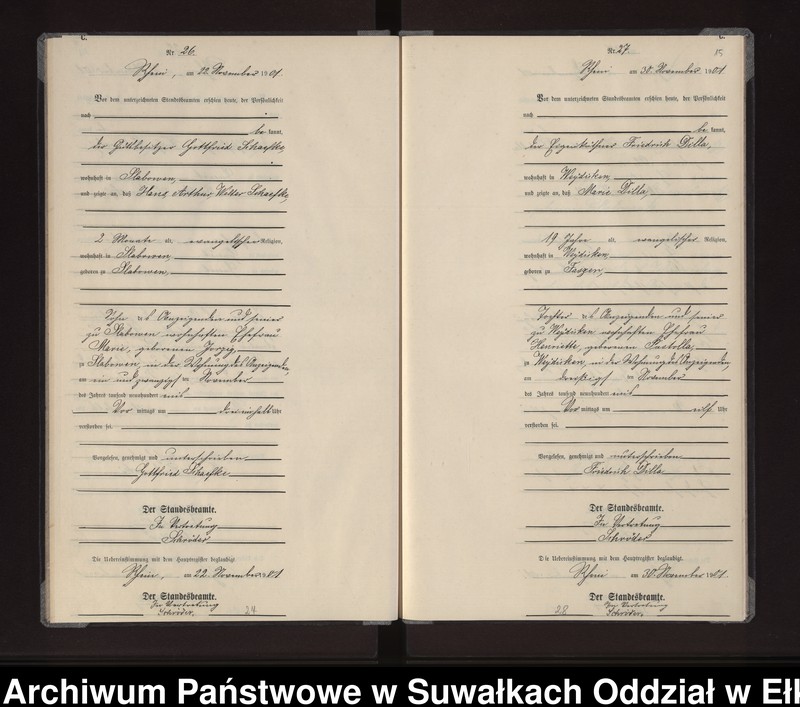 C.
Nr. 26.
Rhein, am 22. November 1901.
Vor dem unterzeichneten Standesbeamten erschien heute, der Persönlichkeit
nach
be kannt,
der Gutsbesitzer Gottfried
wohnhaft in Slabowen,
und zeigte an, daß Hans Arthur Walter
2 Monate alt, evangelischer Religion,
wohnhaft in Slabowen,
geboren zu Slabowen,
Sohn des Anzeigenden und seiner
zu Slabowen wohnhaften Ehefrau
Marie, geborenen
zu Slabowen, in der Wohnung des Anzeigenden,
am ein und zwanzigsten November
des Jahres tausend neunhundert eins
Vor mittags um dreieinhalb Uhr
verstorben sei.
Vorgelesen, genehmigt und unterschrieben
Gottfried
Der Standesbeamte.
In Vertretung
Schröder
Die Uebereinstimmung mit dem Hauptregister beglaubigt
Rhein, am 22. November 1901
Der Standesbeamte.
In Vertretung
Schröder.
24
C.
Nr. 27.
15
Rhein am 30. November 1901
Vor dem unterzeichneten Standesbeamten erschien heute, der Persönlichkeit
nach
be kannt,
der Eigenkäthner Friedrich Dilla,
wohnhaft in
und zeigte an, daß Marie Dilla,
19 Jahre alt, evangelischer Religion,
wohnhaft in
geboren zu
Tochter des Anzeigenden und seiner
zu wohnhaften Ehefrau
Henriette, geborenen
zu in der Wohnung des Anzeigenden,
am dreißigsten November
des Jahres tausend neunhundert eins
Vor mittags um elf Uhr
verstorben sei.
Vorgelesen, genehmigt und unterschrieben
Friedrich Dilla
Der Standesbeamte.
In Vertretung
Schröder
Die Uebereinstimmung mit dem Hauptregister beglaubigt.
Rhein am 30. November 1901
Der Standesbeamte.
In Vertretung
Schröder.
28
Archiwum Państwowe w Suwałkach Oddział w Ełk